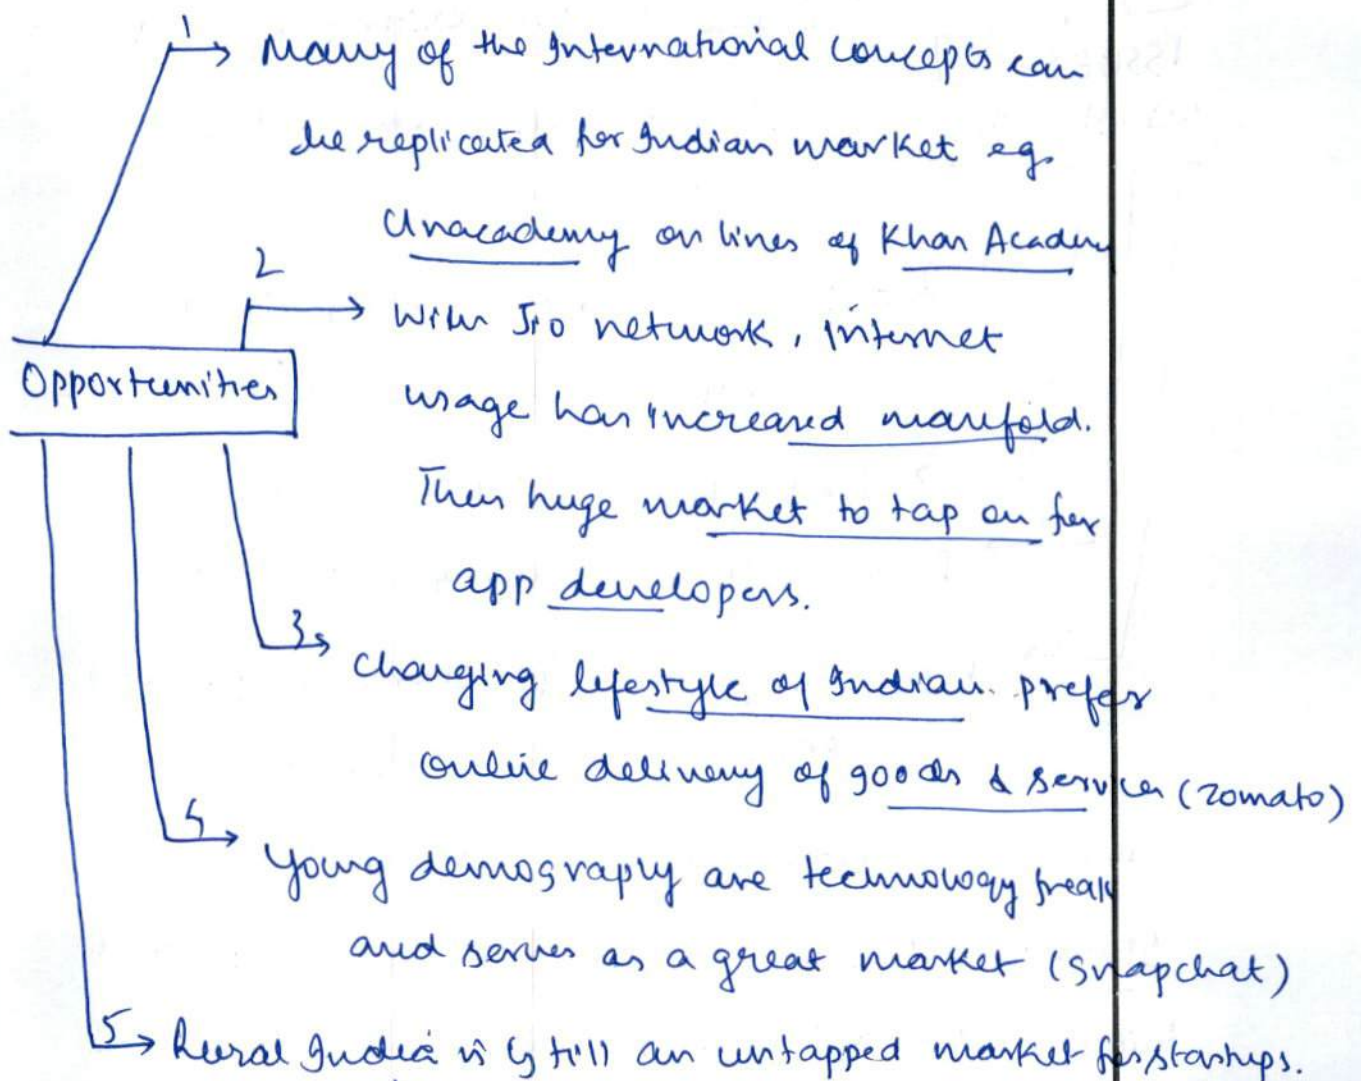 1 → Many of the International concepts can
be replicated for Indian market eg.
Unacademy on lines of Khan Academy
2 → With Jio network, internet
usage has increased manifold.
Thus huge market to tap on for
app developers.
Opportunities
3 → Changing lifestyle of Indian prefer
online delivery of goods & services (zomato)
4 → Young demography are technology freak
and serves as a great market (Snapchat)
5 → Rural India is still an untapped market for startups.